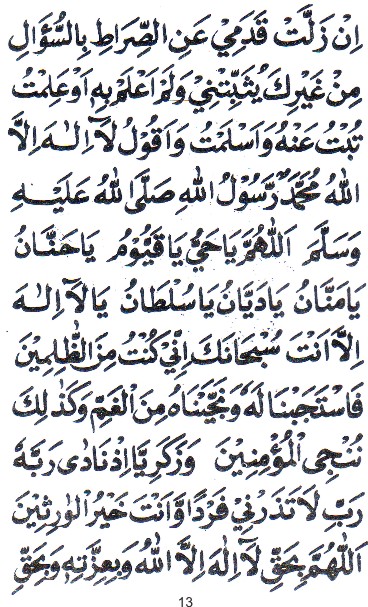 اِنْ زَلَّتْ قَدَمِيْ عَنِ الصِّرَاطِ بِالسُّؤَالِ
مِنْ غَيْرِكَ يُثَبِّتْنِيْ وَلَمْ اَعْلَمْ بِهٖ اَوْ عَلِمْتُ
تُبْتُ عَنْهُ وَاَسْلَمْتُ وَاَقُوْلُ لَآ اِلٰهَ اِلَّا
اللهُ مُحَمَّدٌ رَّسُوْلُ اللهِ صَلَّى اللهُ عَلَيْهِ
وَسَلَّمَ اَللّٰهُمَّ يَا حَيُّ يَا قَيُّوْمُ يَا حَنَّانُ
يَا مَنَّانُ يَا دَيَّانُ يَا سُلْطَانُ يَا لَآ اِلٰهَ
اِلَّا اَنْتَ سُبْحَانَكَ اِنِّيْ كُنْتُ مِنَ الظّٰلِمِيْنَ
فَاسْتَجَبْنَا لَهٗ وَنَجَّيْنَاهُ مِنَ الْغَمِّ وَكَذٰلِكَ
نُنْجِى الْمُؤْمِنِيْنَ وَزَكَرِيَّا اِذْ نَادٰى رَبَّهٗ
رَبِّ لَا تَذَرْنِيْ فَرْدًا وَّاَنْتَ خَيْرُ الْوٰرِثِيْنَ
اَللّٰهُمَّ بِحَقِّ لَآ اِلٰهَ اِلَّا اللهُ وَبِعِزَّتِهٖ وَبِحَقِّ
13